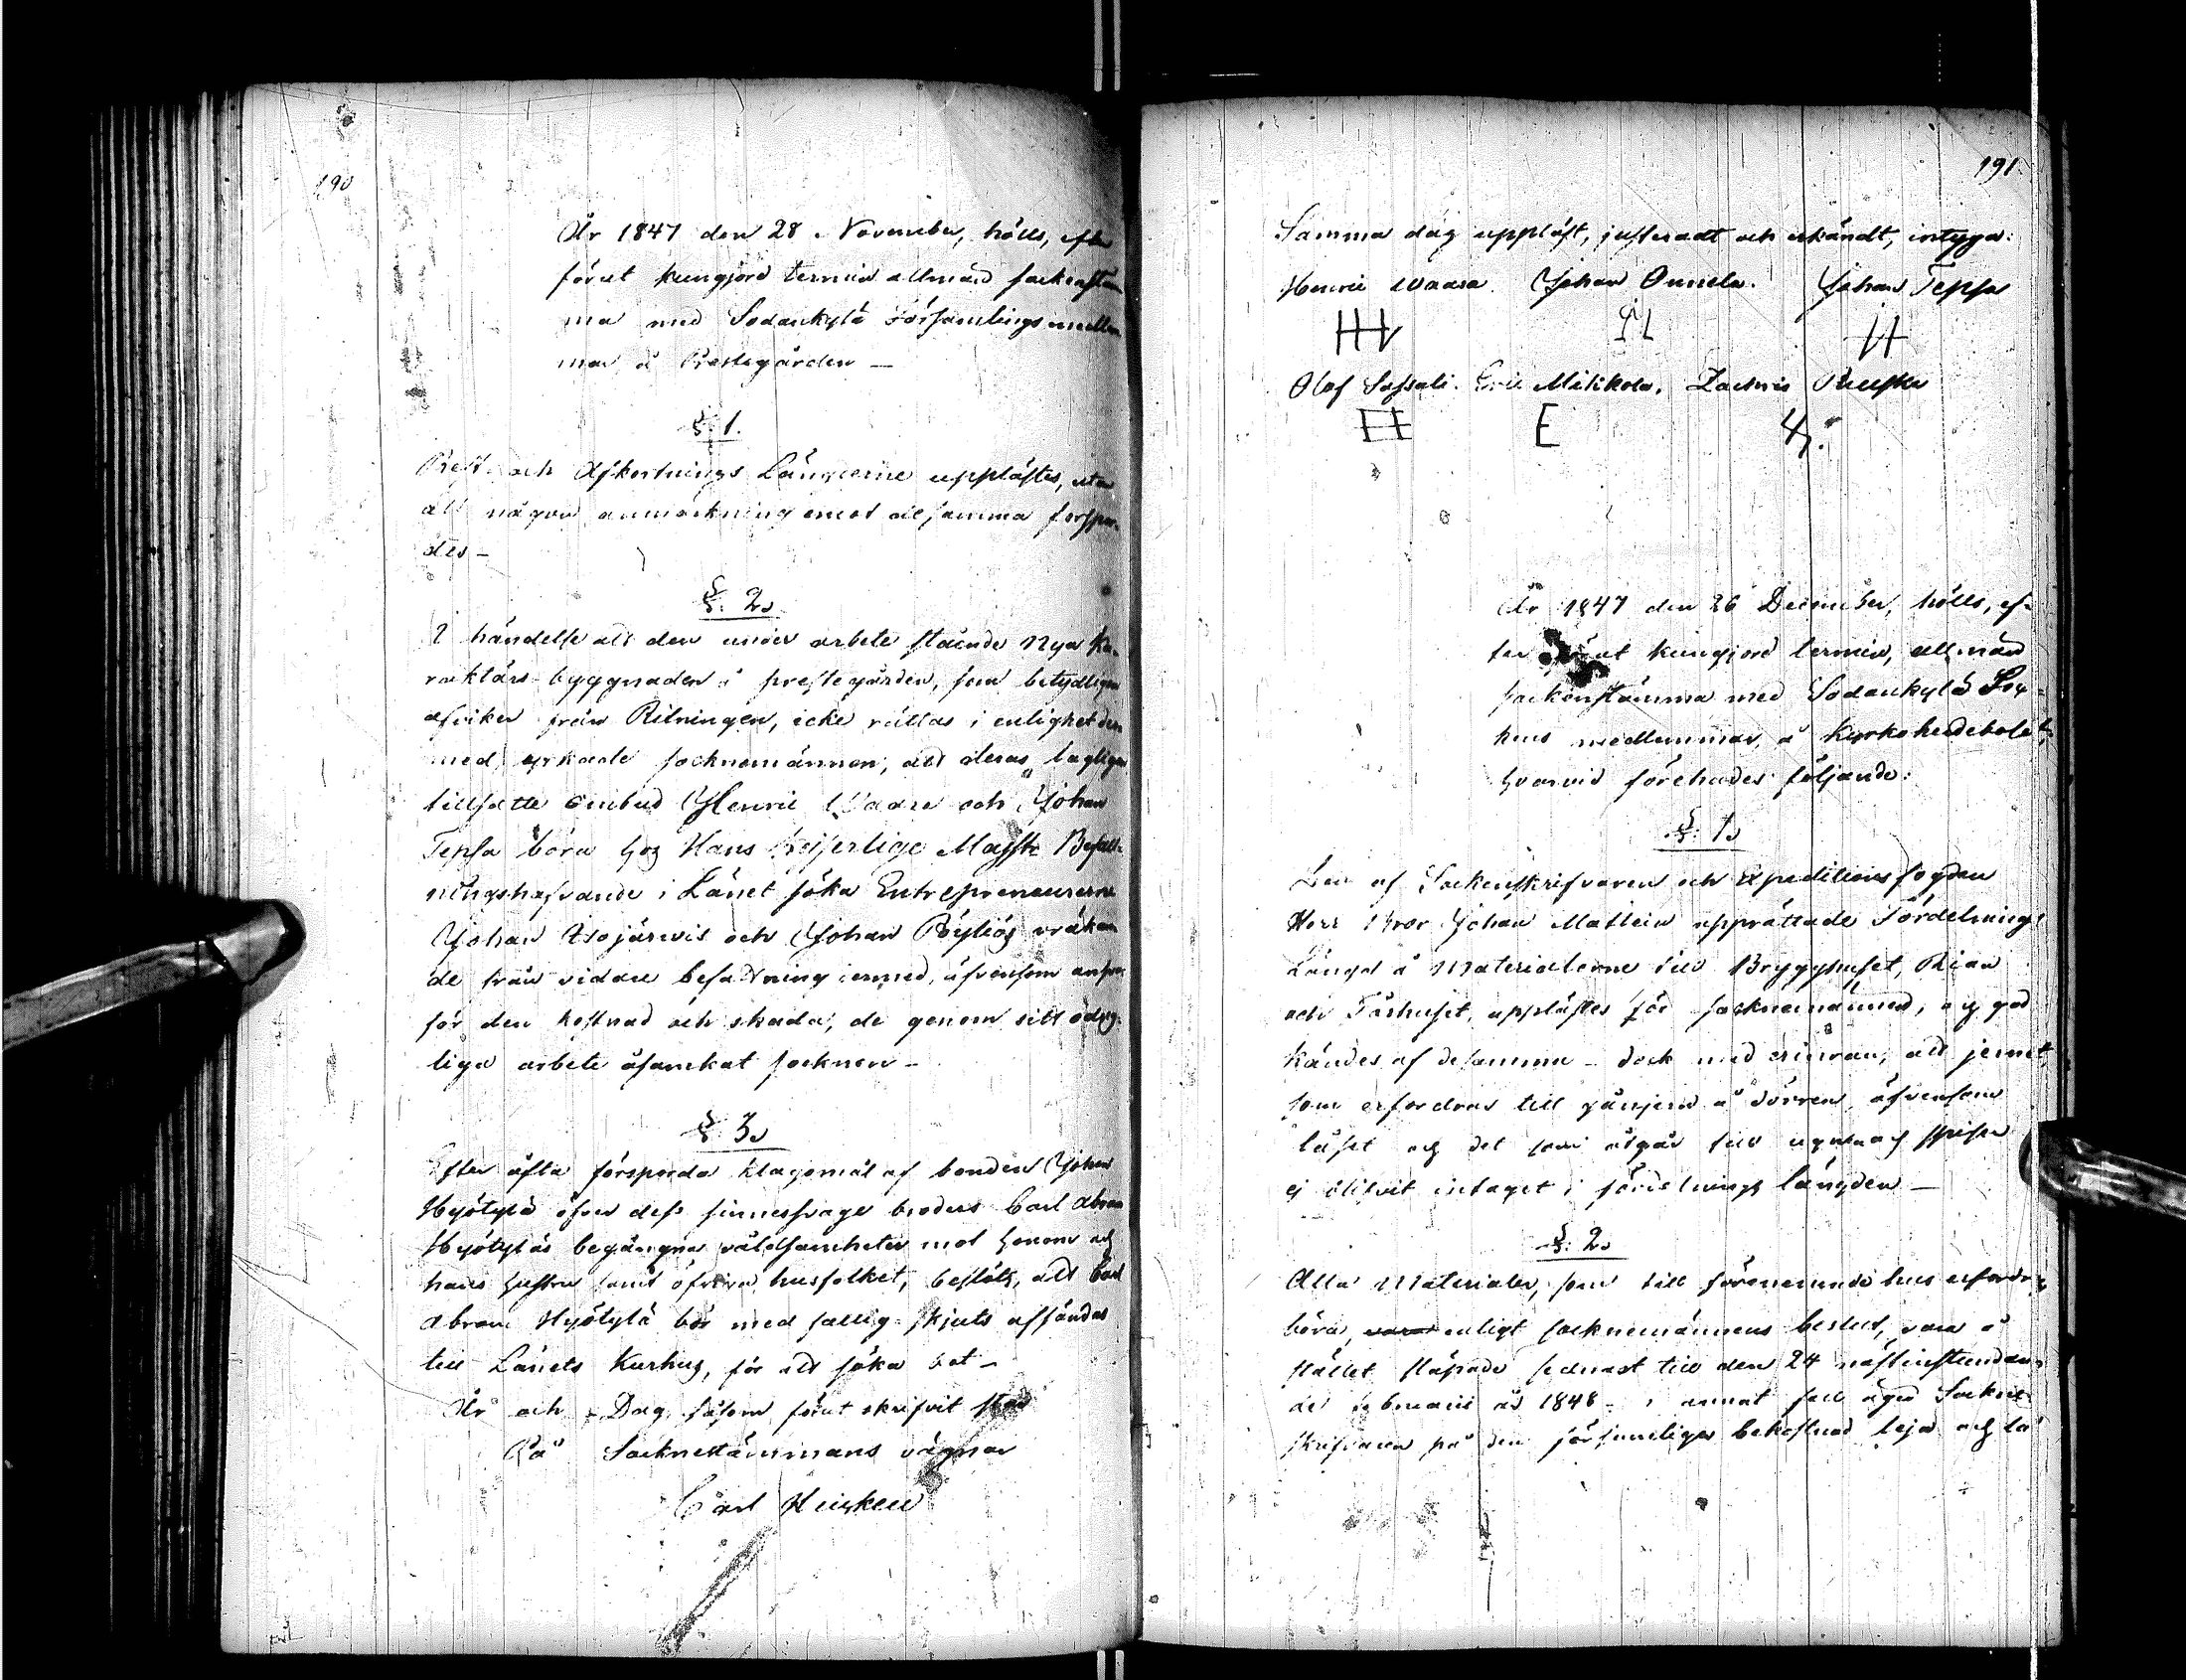 190
År 1847 den 28 November, hölls, efter
förut kungjord termin allmän sockenstäm
ma med Sodankylä Församlings medlem
mar å Prestegården —
§. 1.
Rest- och Afkortnings Längderne upplästes, utan
att någon anmärkning emot desamma forspor-
des —
§. 2.
I händelse att den under arbete stående Nya Ka-
raktärs-byggnaden å prestegården, som betydligen
afviker från Ritningen, icke rättas i enlighet der-
med, yrkade socknemännen, att deras lagligen
tillsatte ombud Henric Waara och Johan
Tepsa böra hos Hans Kejserlige Majsts Befall-
ningshafvande i Länet söka Entrepreneurerne
Johan Isojärwis och Johan Pöyliös vräkan-
de från vidare befattning dermed, äfvensom ansvar
för den kostnad och skada, de genom sitt odug-
liga arbete åsamkat socknen —
§. 3.
Efter ofta försporda klagomål af bonden Johan
Hyötylä öfver dess sinnessvage broders Carl Abram
Hyötyläs begångna våldsamheter mot honom och
hans hustru samt öfriga husfolket, beslöts, att Carl
Abram Hyötylä bör med fattig-skjuts afsändas
till Länets Kurhus, för att söka bot —
År och Dag såsom förut skrifvit står
På Socknestämmans vägnar
Carl Heickell
191.
Samma dag uppläst, justeradt och erkändt, intyga:
Henric Waara. Johan Onnela. Johan Tepsa
Olof Sassali. Eric Mätikola. Zachris Ruoska
E
År 1847 den 26 December, hölls, ef-
ter förut kungjord termin, allmän
sockenstämma med Sodankylä Soc-
kens medlemmar, å Kyrkoherdebolet,
hvarvid förehades följande:
§. 1.
Den af Sockenskrifvaren och Expeditionsfogden
Herr Bror Johan Matlein upprättade Fördelnings
Längd å Materialerne till Brygghuset, Rian
och Fårhuset, upplästes för socknemännen, och god
kändes af desamma — dock med erinran, att jernet,
som erfordras till gångjern å dörren, äfvensom
låset och det som åtgår till ugnen och spisen
ej blifvit intaget i fördelnings längden —
§. 2.
Alla Materialer, som till förenämnde hus erfordras,
böra, enligt socknemännens beslut, vara å
stället släpade sednast till den 24 nästinstundan-
de Februarii år 1848 — i annat fall äger Sockne
skrifvaren på den försumliges bekostnad leja och la